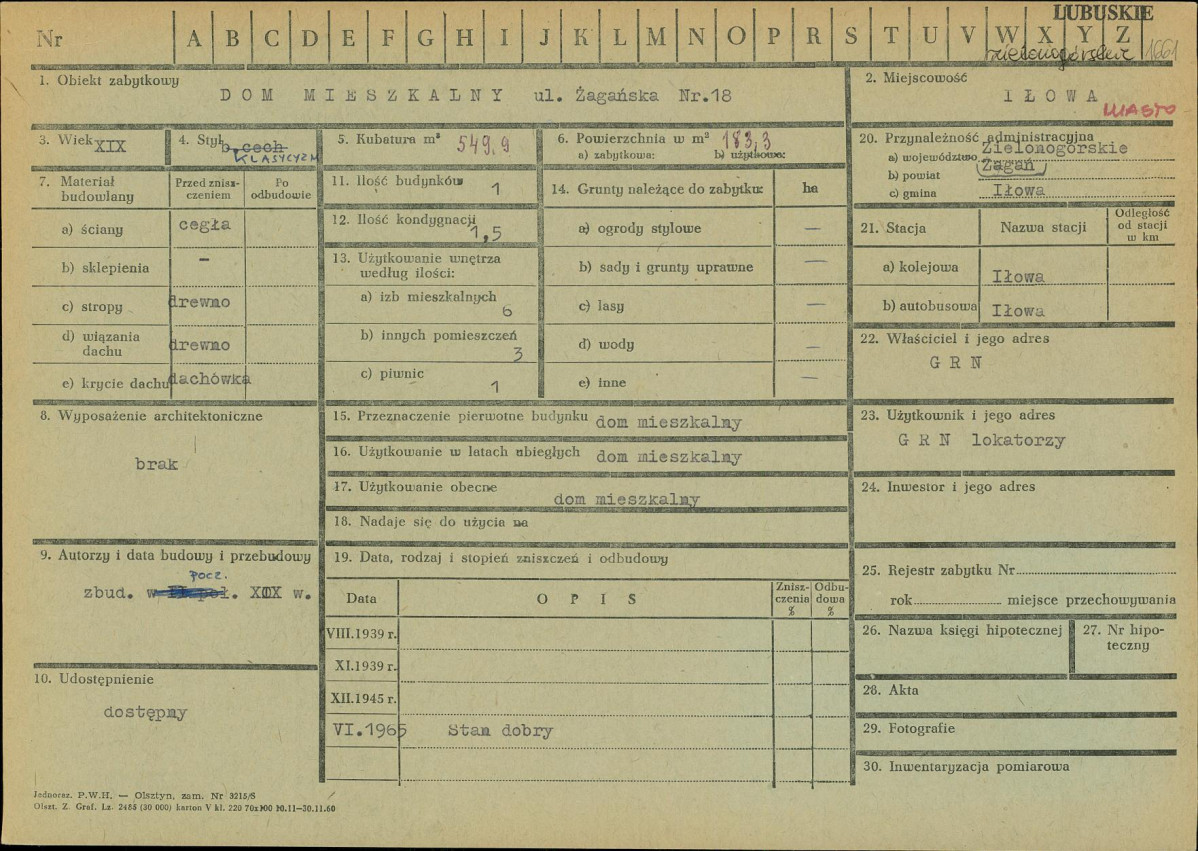 LUBUSKIE
Nr A B C D E F G H I J K L M N O P R S T U V W X Y Z
zielonogórskie 1661
1. Obiekt zabytkowy
DOM MIESZKALNY ul. Żagańska Nr.18
2. Miejscowość
IŁOWA
MIASTO
3. Wiek XIX
4. Styl b. cech
KLASYCYZM
5. Kubatura m³ 549,9
6. Powierzchnia w m² 183,3
a) zabytkowa: b) użytkowa:
20. Przynależność administracyjna
a) województwo Zielonogórskie
b) powiat Żagań
c) gmina Iłowa
7. Materiał budowlany
Przed zniszczeniem
Po odbudowie
a) ściany cegła
b) sklepienia –
c) stropy drewno
d) wiązania dachu drewno
e) krycie dachu dachówka
11. Ilość budynków 1
12. Ilość kondygnacji 1,5
13. Użytkowanie wnętrza
według ilości:
a) izb mieszkalnych 6
b) innych pomieszczeń 3
c) piwnic 1
14. Grunty należące do zabytku: ha
a) ogrody stylowe —
b) sady i grunty uprawne —
c) lasy —
d) wody —
e) inne —
21. Stacja Nazwa stacji Odległość od stacji w km
a) kolejowa Iłowa
b) autobusowa Iłowa
22. Właściciel i jego adres
G R N
8. Wyposażenie architektoniczne
brak
15. Przeznaczenie pierwotne budynku dom mieszkalny
16. Użytkowanie w latach ubiegłych dom mieszkalny
17. Użytkowanie obecne dom mieszkalny
18. Nadaje się do użycia na
23. Użytkownik i jego adres
G R N lokatorzy
24. Inwestor i jego adres
9. Autorzy i data budowy i przebudowy
pocz.
zbud. w II poł. XIX w.
10. Udostępnienie
dostępny
19. Data, rodzaj i stopień zniszczeń i odbudowy
Data OPIS Zniszczenia % Odbudowa %
VIII.1939 r.
XI.1939 r.
XII.1945 r.
VI.1965 Stan dobry
25. Rejestr zabytku Nr
rok miejsce przechowywania
26. Nazwa księgi hipotecznej
27. Nr hipoteczny
28. Akta
29. Fotografie
30. Inwentaryzacja pomiarowa
Jednoraz. P.W.H. — Olsztyn, zam. Nr 3215/S
Olszt. Z. Graf. Lz. 2485 (30 000) karton V kl. 220 70x100 10.11—30.11.60